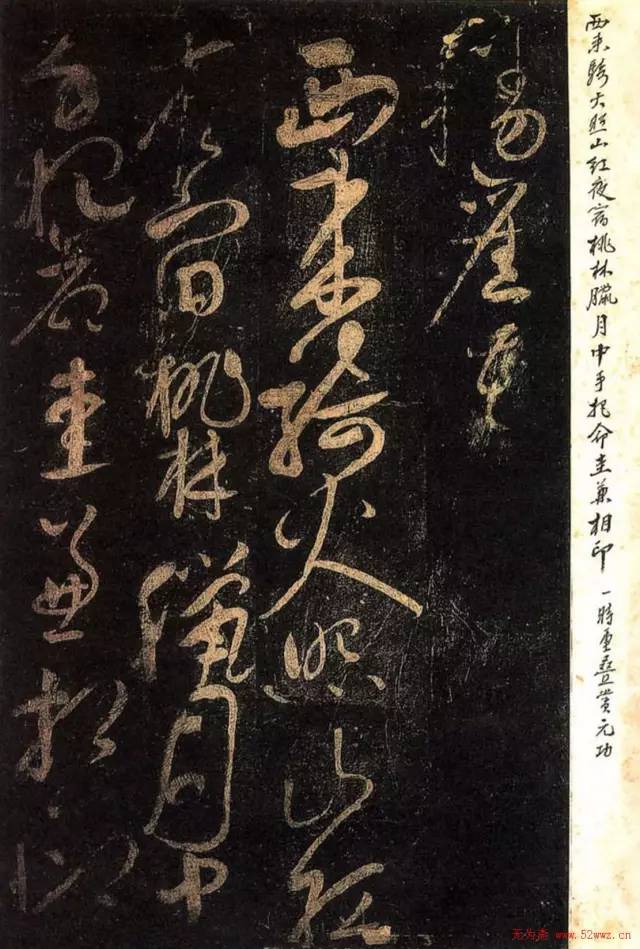 西来騎火照山红夜宿桃林臘月中手把命圭兼相印 一時重疊賞元功
西来騎火照山紅
夜宿桃林臘月中
手把命圭兼相印
无为斋 www.52wwz.cn